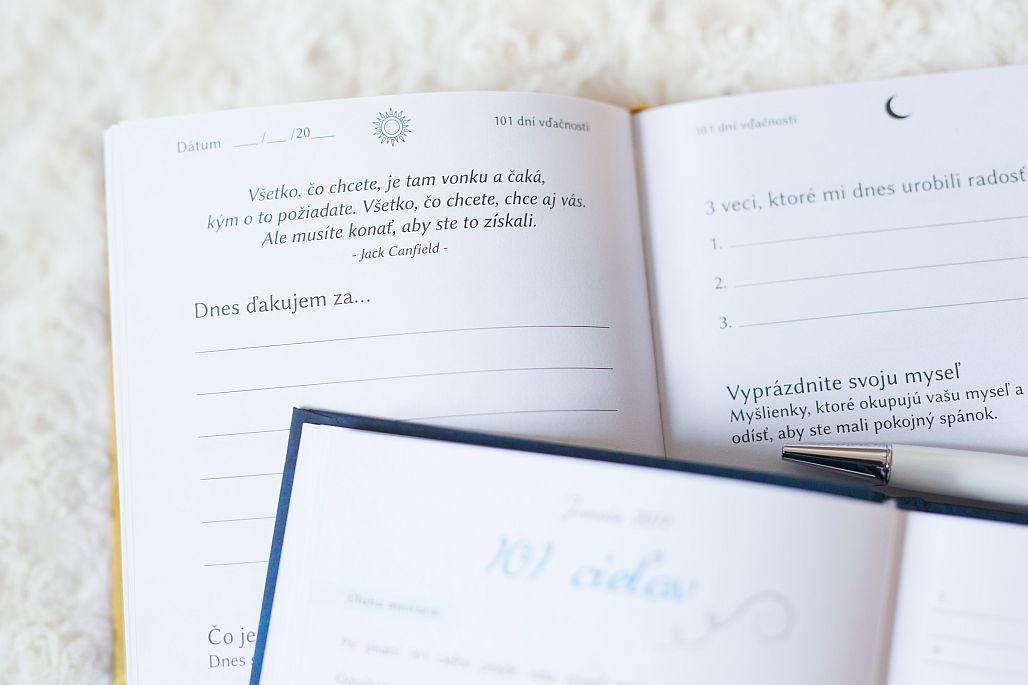 Dátum ___ /___ /20___
101 dní vďačnosti
Všetko, čo chcete, je tam vonku a čaká,
kým o to požiadate. Všetko, čo chcete, chce aj vás.
Ale musíte konať, aby ste to získali.
- Jack Canfield -
Dnes ďakujem za...
Čo je
Dnes
101 dní vďačnosti
3 veci, ktoré mi dnes urobili radosť
1.
2.
3.
Vyprázdnite svoju myseľ
Myšlienky, ktoré okupujú vašu myseľ a
odísť, aby ste mali pokojný spánok.
101 cieľov